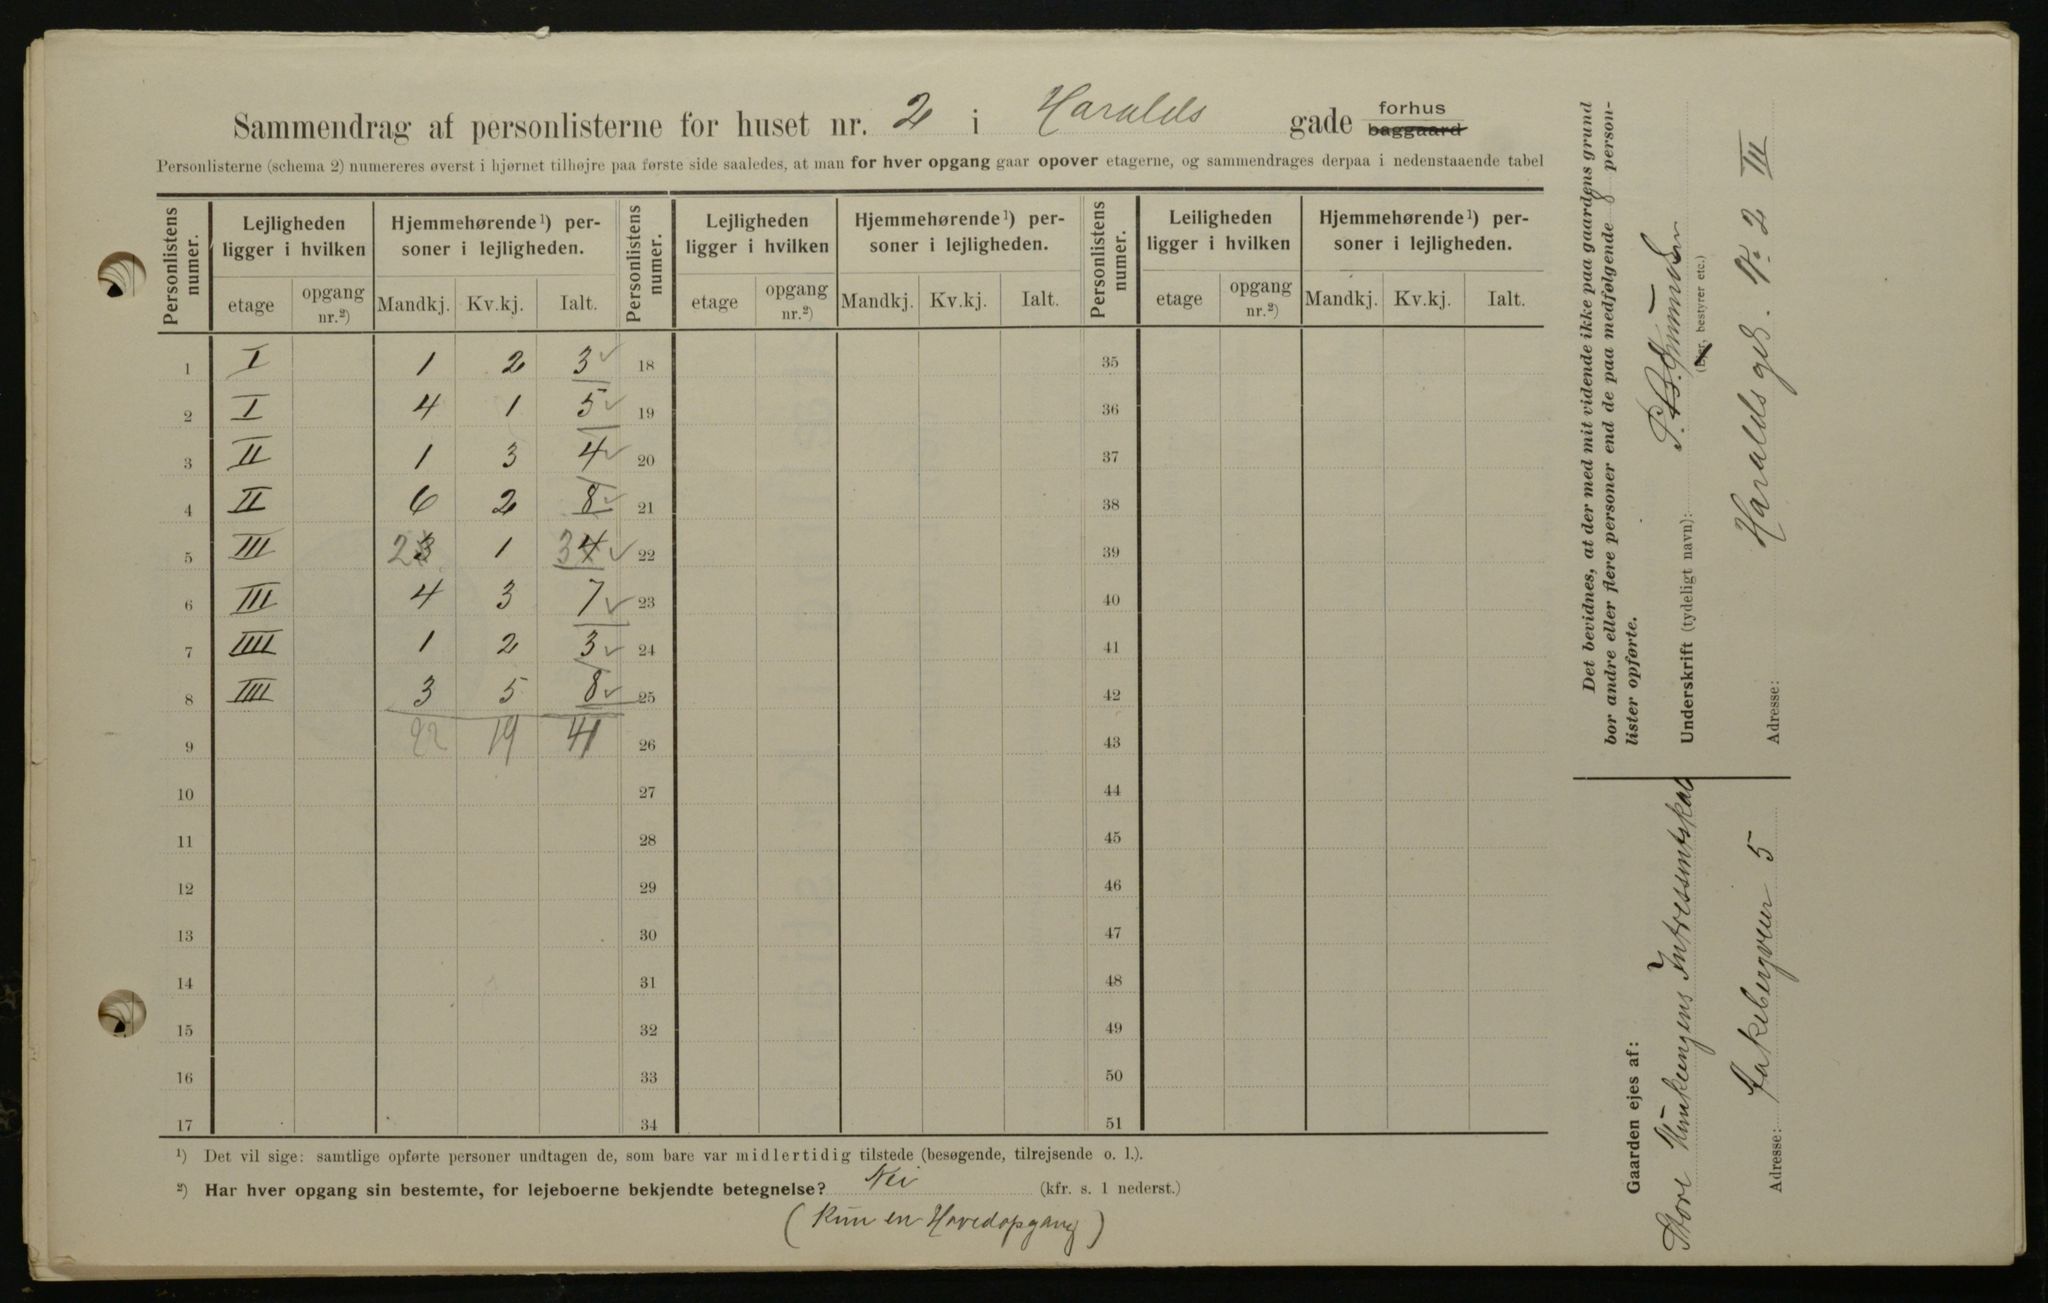 Sammendrag af personlisterne for huset nr. 2 i Haralds gade forhus baggaard
Personlisterne (schema 2) numereres øverst i hjørnet tilhøjre paa første side saaledes, at man for hver opgang gaar opover etagerne, og sammendrages derpaa i nedenstaaende tabel
Personlistens numer. Lejligheden ligger i hvilken Hjemmehørende¹) personer i lejligheden. Personlistens numer. Lejligheden ligger i hvilken Hjemmehørende¹) personer i lejligheden. Personlistens numer. Leiligheden ligger i hvilken Hjemmehørende¹) personer i lejligheden.
etage opgang nr.²) Mandkj. Kv.kj. Ialt. etage opgang nr.²) Mandkj. Kv.kj. Ialt. etage opgang nr.²) Mandkj. Kv.kj. Ialt.
1 I 1 2 3 18 35
2 I 4 1 5 19 36
3 II 1 3 4 20 37
4 II 6 2 8 21 38
5 III 2 3 1 3 4 22 39
6 III 4 3 7 23 40
7 IIII 1 2 3 24 41
8 IIII 3 5 8 25 42
9 22 19 41 26 43
10 27 44
11 28 45
12 29 46
13 30 47
14 31 48
15 32 49
16 33 50
17 34 51
¹) Det vil sige: samtlige opførte personer undtagen de, som bare var midlertidig tilstede (besøgende, tilrejsende o. l.).
²) Har hver opgang sin bestemte, for lejeboerne bekjendte betegnelse? Nei (kfr. s. 1 nederst.)
(Kun en Hovedopgang)
Det bevidnes, at der med mit vidende ikke paa gaardens grund
bor andre eller flere personer end de paa medfølgende 8 person-
lister opførte.
Underskrift (tydeligt navn):
(Ejer, bestyrer etc.)
Adresse: Haralds gd. No 2 III
Gaarden ejes af:
Store Intressentskab
Adresse: Aakebergveien 5